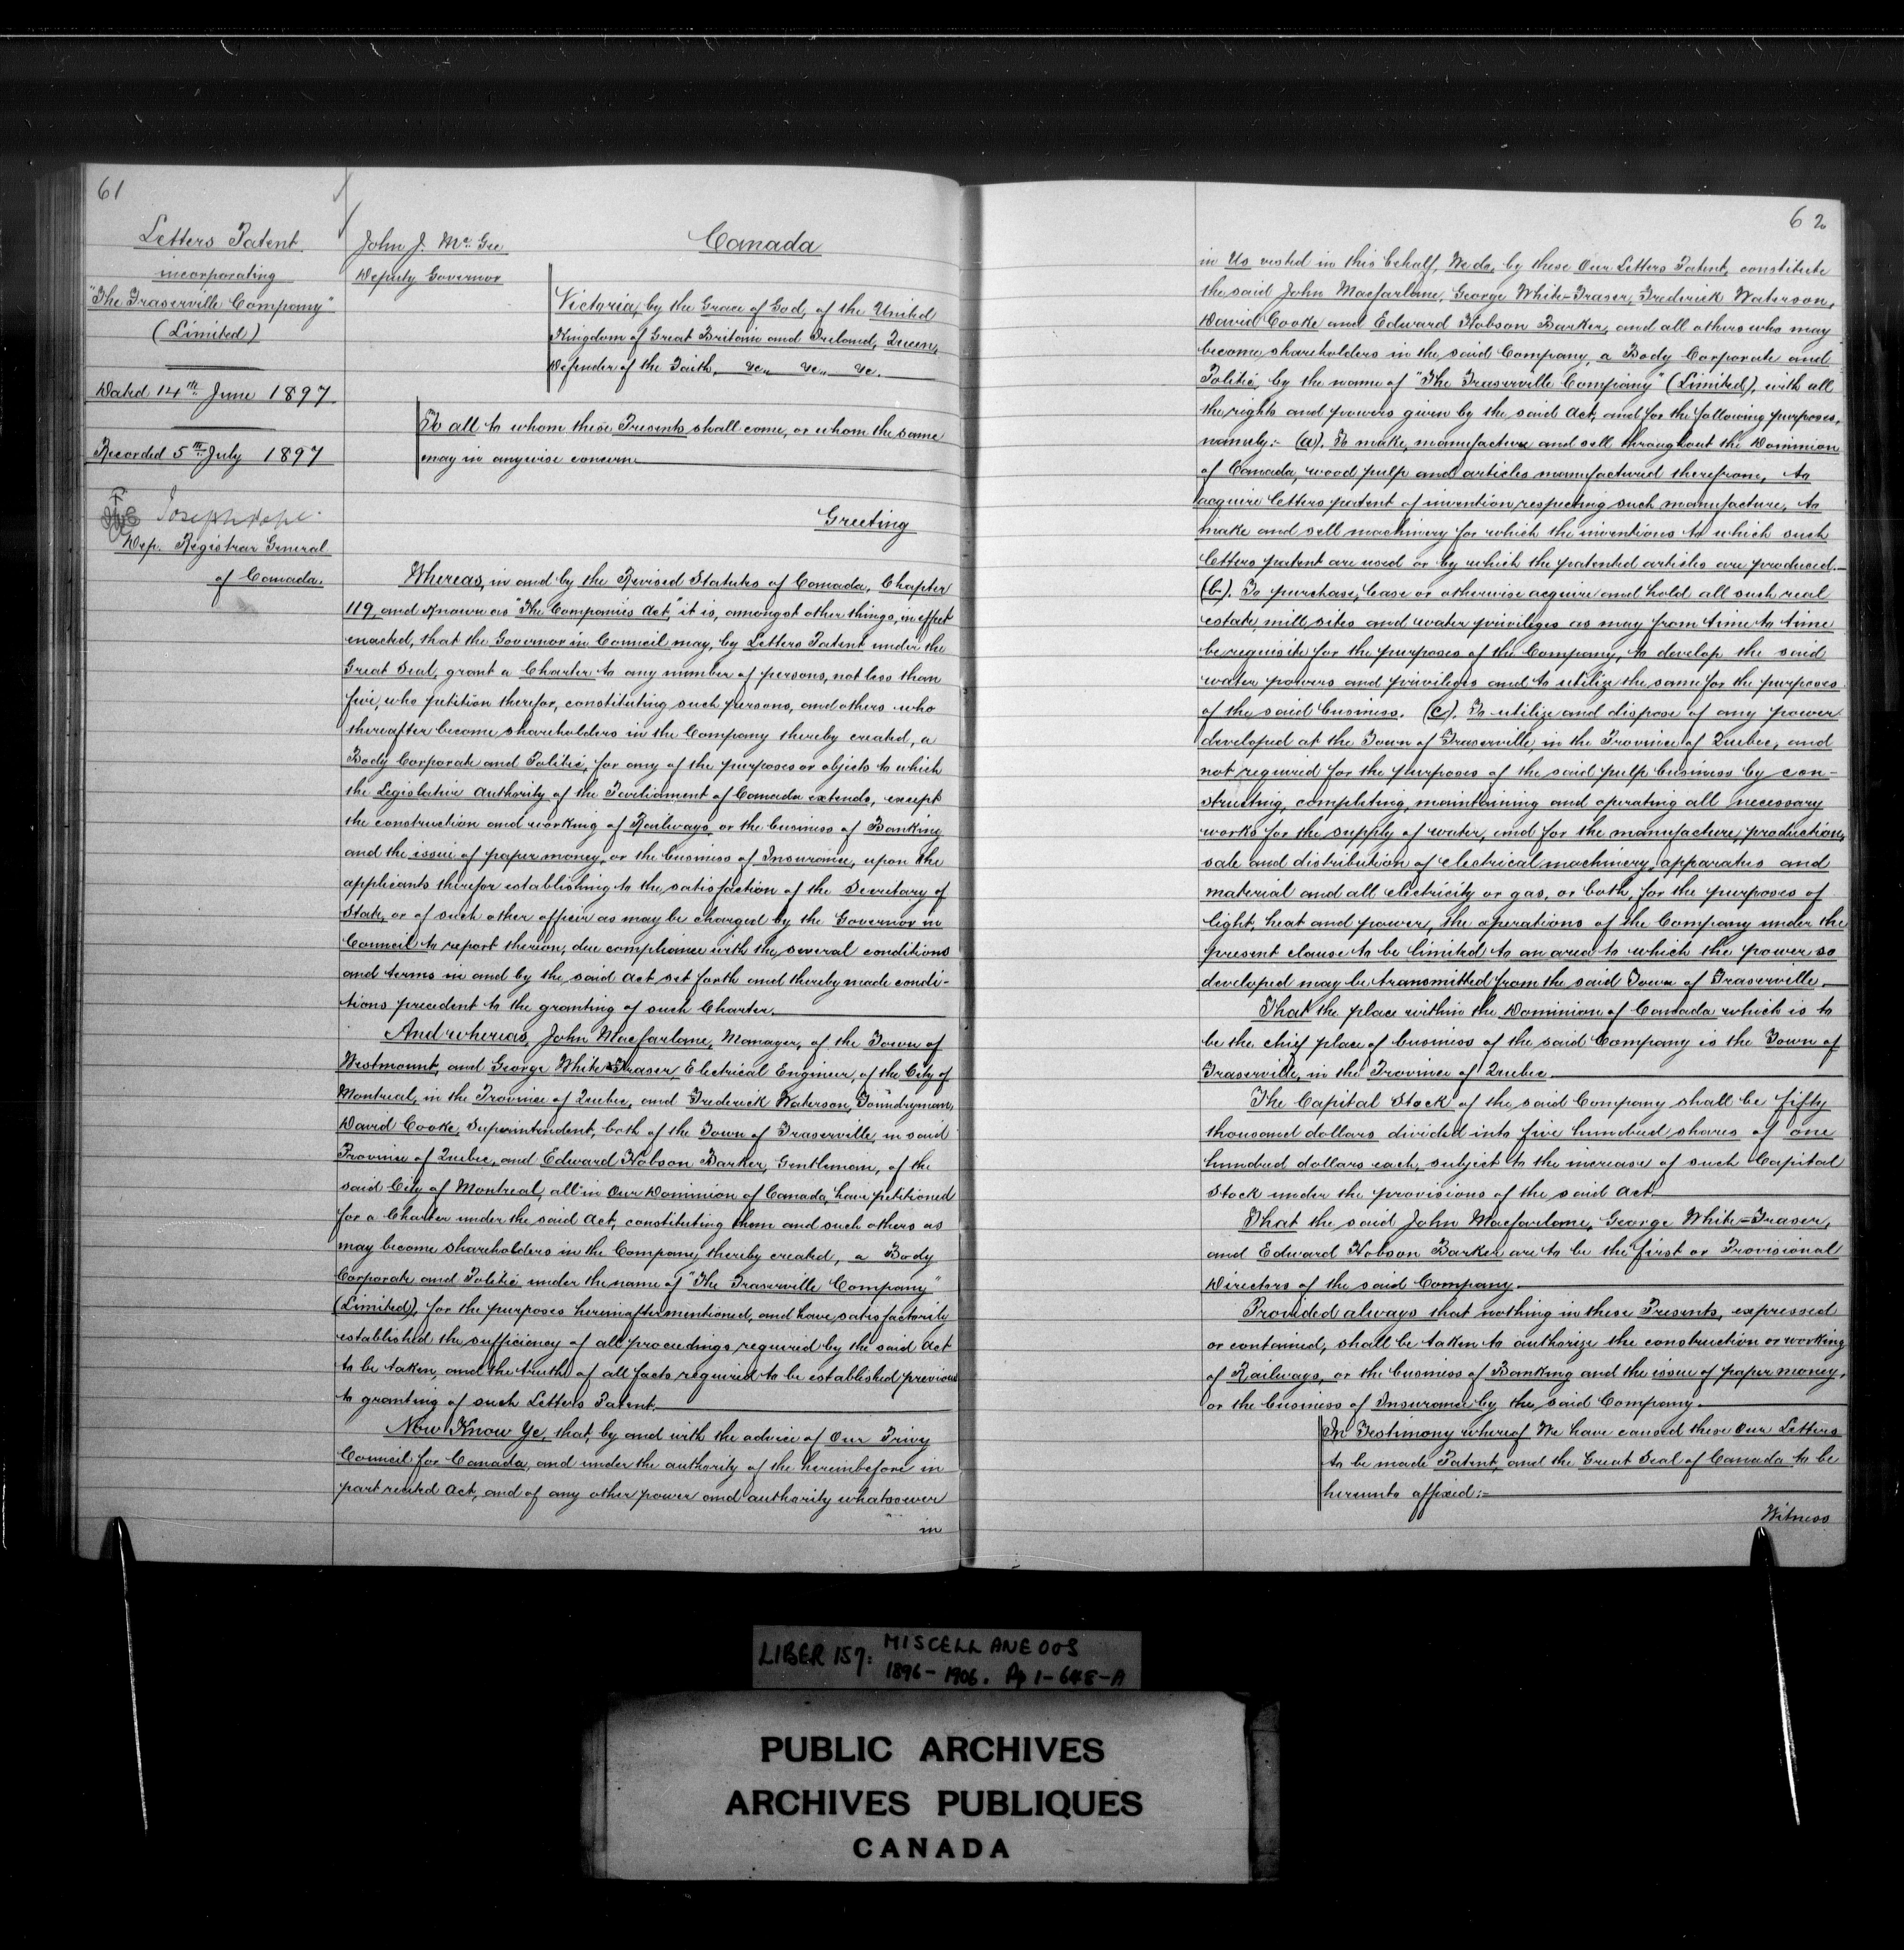 61
Letters Patent
incorporating
"The Fraserville Company"
(Limited)
Dated 14th June 1897
Recorded 5th July 1897
Joseph Pope
Dep. Registrar General
of Canada.
John J. McGee
Deputy Governor
Canada
Victoria, by the Grace of God, of the United
Kingdom of Great Britain and Ireland, Queen,
Defender of the Faith, &c., &c., &c.
To all to whom these Presents shall come, or whom the same
may in anywise concern
Greeting
Whereas, in and by the Revised Statutes of Canada, Chapter
119, and known as "The Companies Act," it is, amongst other things, in effect
enacted, that the Governor in Council may, by Letters Patent under the
Great Seal, grant a Charter to any number of persons, not less than
five, who petition therefor, constituting such persons, and others who
thereafter become shareholders in the Company thereby created, a
Body Corporate and Politic, for any of the purposes or objects to which
the Legislative Authority of the Parliament of Canada extends, except
the construction and working of Railways, or the business of Banking
and the issue of paper money, or the business of Insurance, upon the
applicants therefor establishing to the satisfaction of the Secretary of
State, or of such other officer as may be charged by the Governor in
Council to report thereon, due compliance with the several conditions
and terms in and by the said Act set forth and thereby made condi-
tions precedent to the granting of such Charter.
And whereas, John Macfarlane, Manager, of the Town of
Westmount, and George White-Fraser, Electrical Engineer, of the City of
Montreal, in the Province of Quebec, and Frederick Waterson, Foundryman,
David Cooke, Superintendent, both of the Town of Fraserville, in said
Province of Quebec, and Edward Hobson Barker, Gentleman, of the
said City of Montreal, all in Our Dominion of Canada, have petitioned
for a Charter under the said Act, constituting them and such others as
may become shareholders in the Company thereby created, a Body
Corporate and Politic under the name of "The Fraserville Company"
(Limited), for the purposes hereinafter mentioned, and have satisfactorily
established the sufficiency of all proceedings required by the said Act
to be taken, and the truth of all facts required to be established previous
to granting of such Letters Patent.
Now Know Ye, that, by and with the advice of Our Privy
Council for Canada, and under the authority of the hereinbefore in
part recited Act, and of any other power and authority whatsoever
in
62
in Us vested in this behalf, We do, by these Our Letters Patent, constitute
the said John Macfarlane, George White-Fraser, Frederick Waterson,
David Cooke and Edward Hobson Barker, and all others who may
become shareholders in the said Company, a Body Corporate and
Politic, by the name of "The Fraserville Company" (Limited), with all
the rights and powers given by the said Act, and for the following purposes,
namely:- (a). To make, manufacture and sell throughout the Dominion
of Canada, wood pulp and articles manufactured therefrom, to
acquire letters patent of invention respecting such manufacture, to
make and sell machinery for which the inventions to which such
letters patent are used or by which the patented articles are produced.
(b). To purchase, lease or otherwise acquire and hold all such real
estate, mill sites and water privileges as may from time to time
be requisite for the purposes of the Company, to develop the said
water powers and privileges and to utilize the same for the purposes
of the said business. (c). To utilize and dispose of any power
developed at the Town of Fraserville in the Province of Quebec, and
not required for the purposes of the said pulp business by con-
structing, completing, maintaining and operating all necessary
works for the supply of water, and for the manufacture, production,
sale and distribution of electrical machinery, apparatus and
material and all electricity or gas, or both, for the purposes of
light, heat and power, the operations of the Company under the
present clause to be limited to an area to which the power so
developed may be transmitted from the said Town of Fraserville.
That the place within the Dominion of Canada which is to
be the chief place of business of the said Company is the Town of
Fraserville, in the Province of Quebec
The Capital Stock of the said Company shall be fifty
thousand dollars divided into five hundred shares of one
hundred dollars each, subject to the increase of such Capital
Stock under the provisions of the said Act.
That the said John Macfarlane, George White-Fraser,
and Edward Hobson Barker are to be the first or Provisional
Directors of the said Company
Provided always that nothing in these Presents, expressed
or contained, shall be taken to authorize the construction or working
of Railways, or the business of Banking and the issue of paper money,
or the business of Insurance by the said Company.
In Testimony whereof We have caused these Our Letters
to be made Patent, and the Great Seal of Canada to be
hereunto affixed:-
Witness
LIBER 157: MISCELLANEOUS
1896-1906. Pp 1-648-A
PUBLIC ARCHIVES
ARCHIVES PUBLIQUES
CANADA